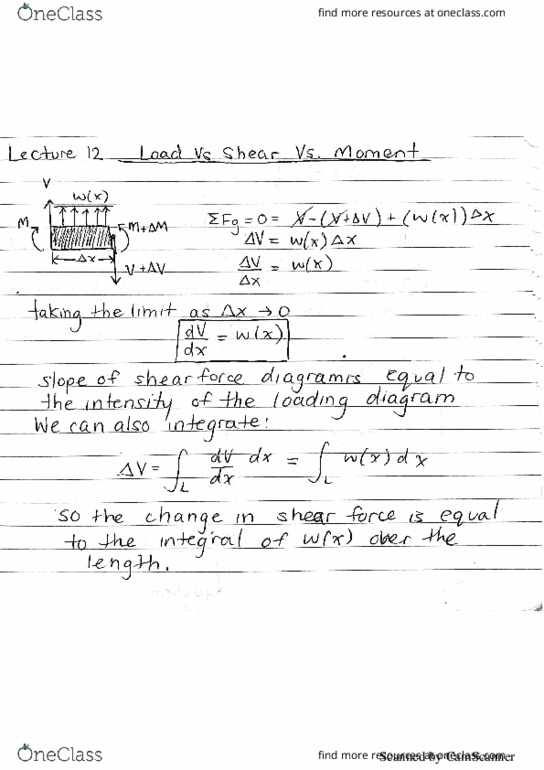 OneClass
find more resources at oneclass.com
Lecture 12 Load Vs Shear Vs. Moment
V
w(x)
M
M+ΔM
Δx
V+ΔV
ΣFy = 0 = V-(V+ΔV) + (w(x))Δx
ΔV = w(x)Δx
ΔV/Δx = w(x)
taking the limit as Δx → 0
dV/dx = w(x)
slope of shear force diagram is equal to
the intensity of the loading diagram
We can also integrate:
ΔV = ∫L dV/dx dx = ∫L w(x)dx
so the change in shear force is equal
to the integral of w(x) over the
length.
OneClass
find more resources at oneclass.com
Scanned by CamScanner